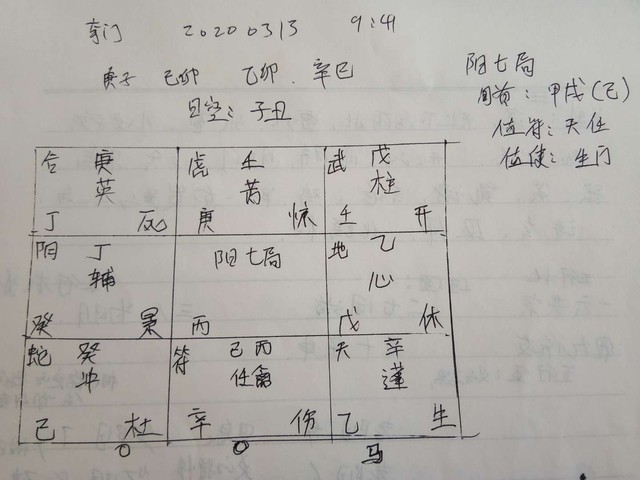 奇门 20200313 9:41
庚子 己卯 乙卯 辛巳
日空:子丑
阳七局
旬首:甲戌(己)
值符:天任
值使:生门
合 庚 虎 壬 武 戊
英 芮 柱
丁 死 庚 惊 壬 开
阴 丁 阳七局 地 乙
辅 心
癸 景 丙 戊 休
蛇 癸 符 己丙 天 辛
冲 任禽 蓬
己 杜 辛 伤 乙 生
○ ○ 马